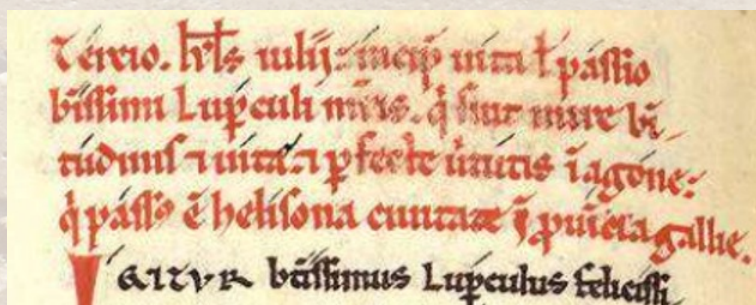 Tercio. kl̅s iulij: incip̅ uita ł passio
bt̅issimi Lup̅culi m̅ris. q̅ fuit mire bt̅i
tudinis ⁊ uita: ⁊ p̱fecte ũtutis ĩ agone:
q̅ passꝰ ẽ helisona ciuitate ĩ p̱uĩcia gallie.
IGITVR bt̅issimus Lup̅culus felicissi